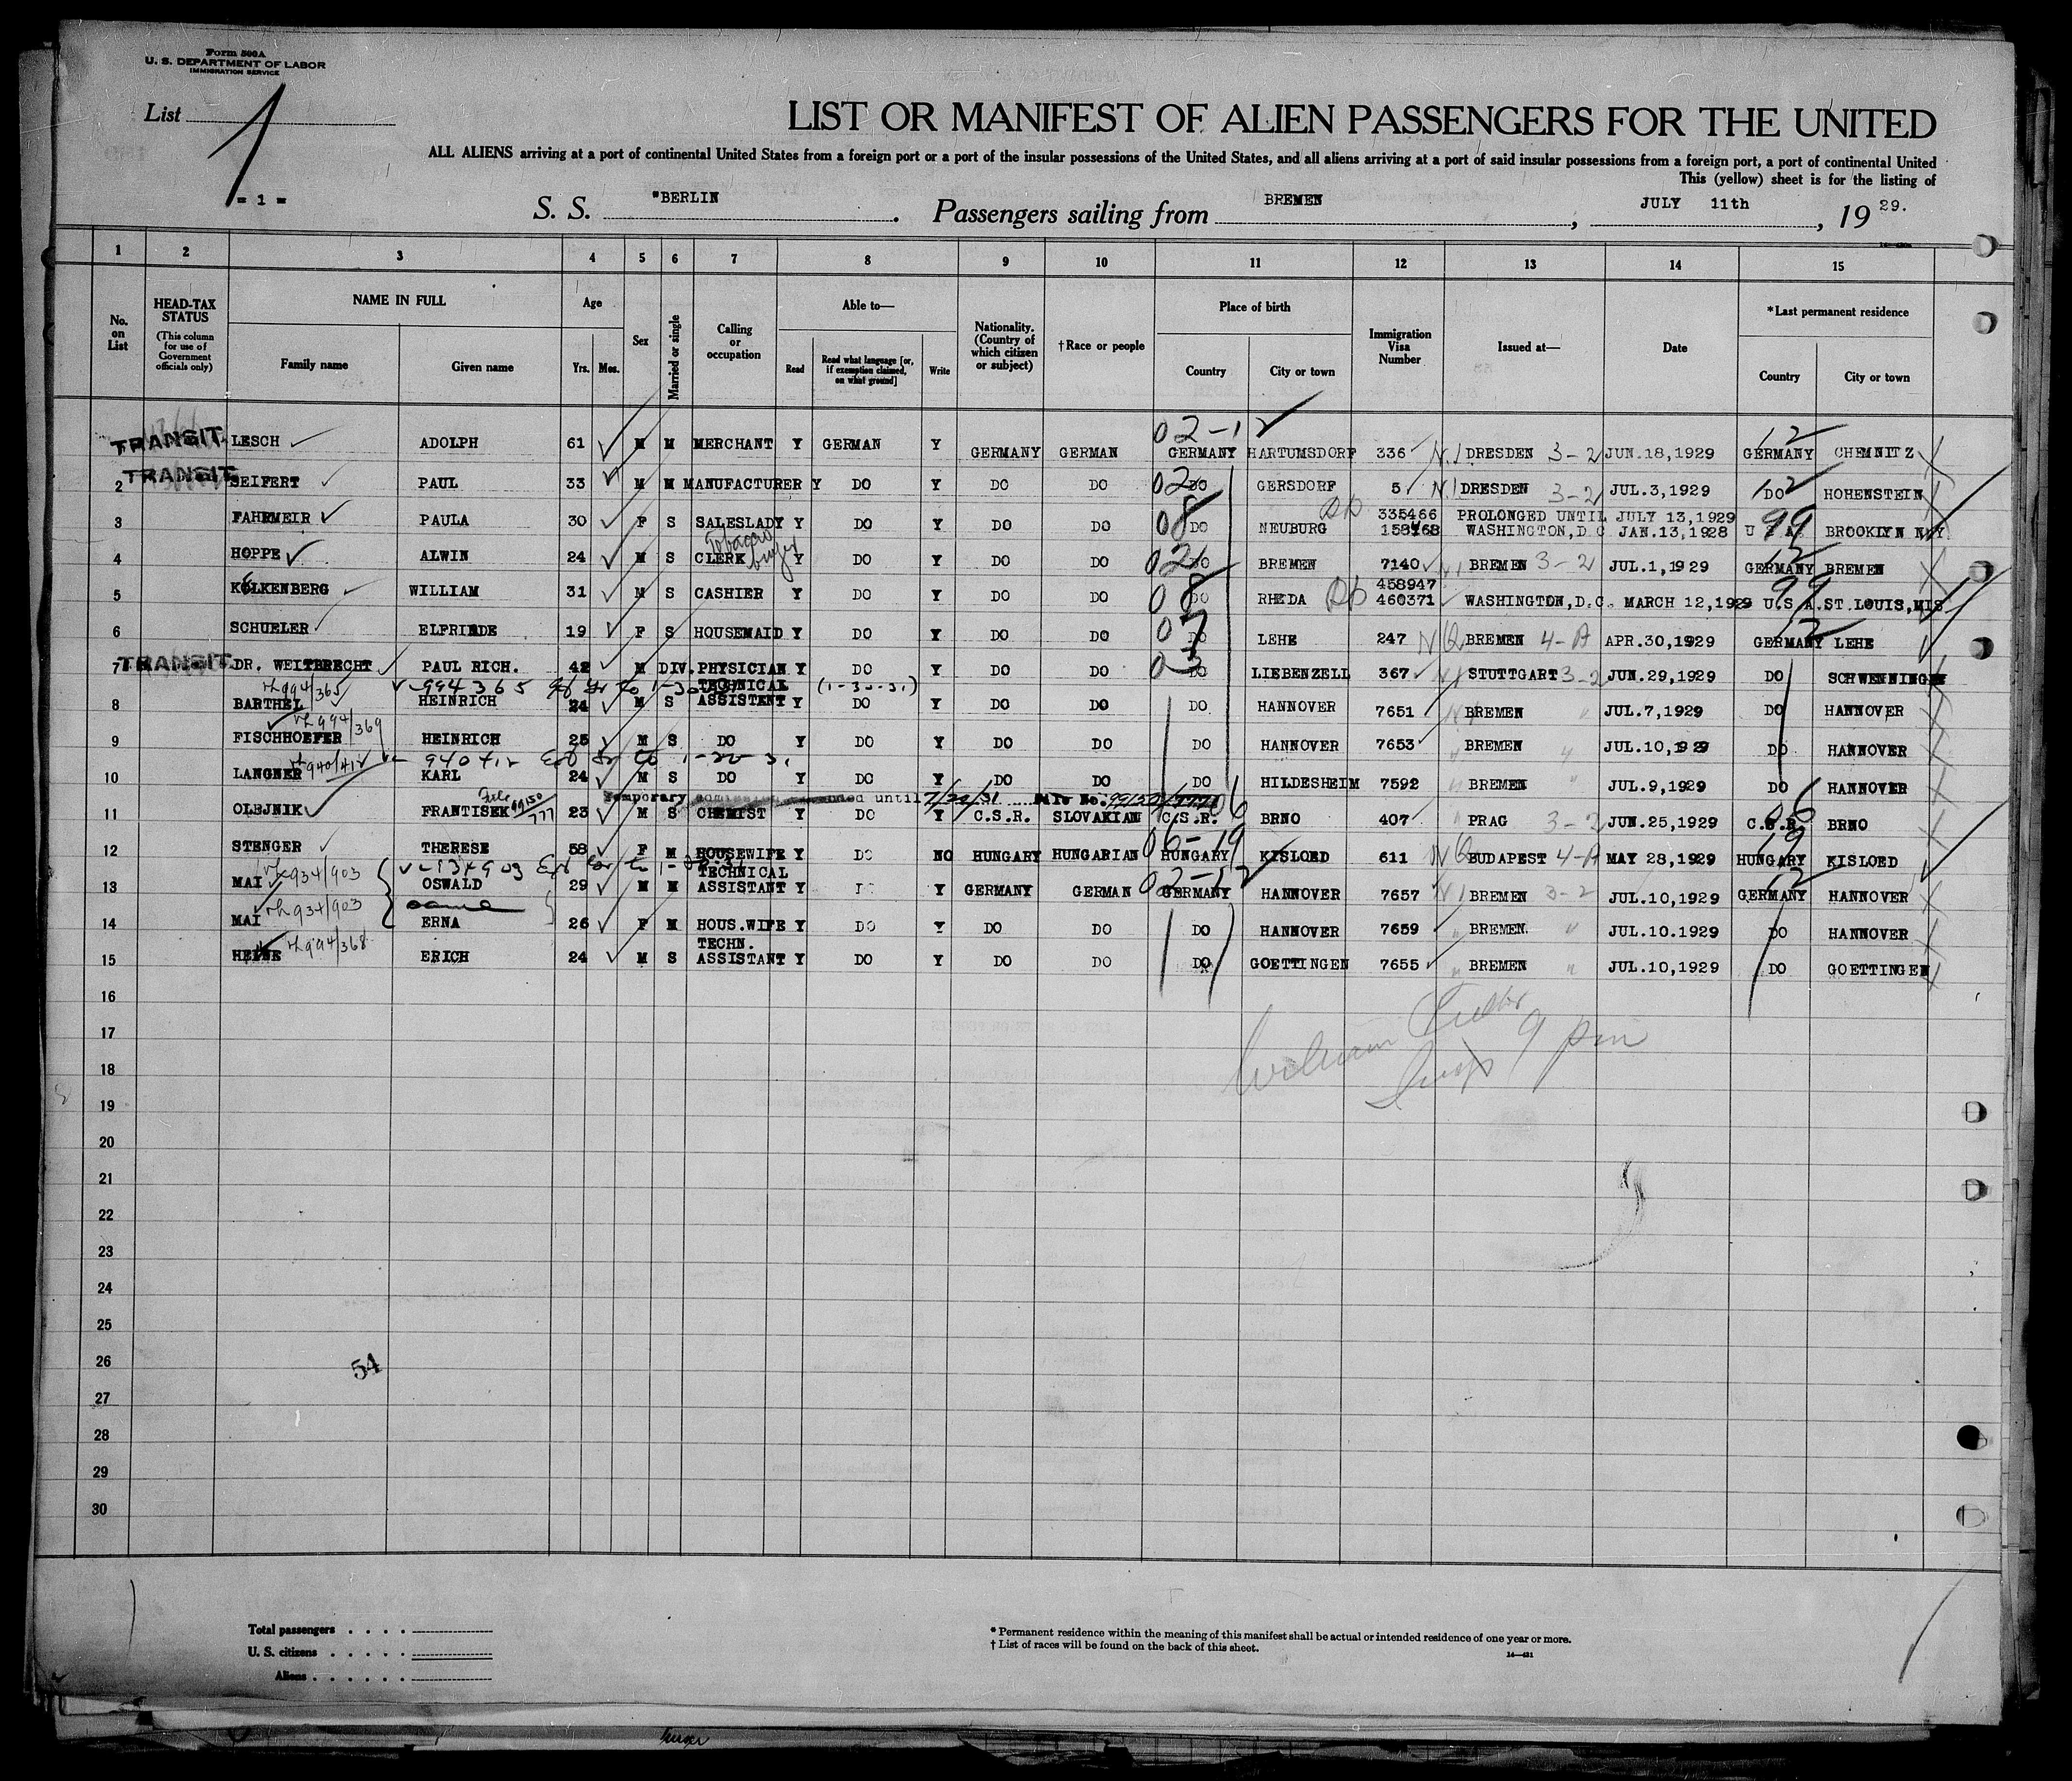 Form 500A
U. S. DEPARTMENT OF LABOR
IMMIGRATION SERVICE
List 1
= 1 =
LIST OR MANIFEST OF ALIEN PASSENGERS FOR THE UNITED
ALL ALIENS arriving at a port of continental United States from a foreign port or a port of the insular possessions of the United States, and all aliens arriving at a port of said insular possessions from a foreign port, a port of continental United
This (yellow) sheet is for the listing of
S. S. "BERLIN . Passengers sailing from BREMEN , JULY 11th , 19 29.
1 2 3 4 5 6 7 8 9 10 11 12 13 14 15
No. on List
HEAD-TAX STATUS (This column for use of Government officials only)
NAME IN FULL Family name Given name
Age Yrs. Mos.
Sex
Married or single
Calling or occupation
Able to— Read Read what language [or, if exemption claimed, on what ground] Write
Nationality. (Country of which citizen or subject)
†Race or people
Place of birth Country City or town
Immigration Visa Number
Issued at—
Date
*Last permanent residence Country City or town
02-12 12
TRANSIT LESCH ADOLPH 61 M M MERCHANT Y GERMAN Y GERMANY GERMAN GERMANY HARTUMSDORF 336 N.I DRESDEN 3-2 JUN.18,1929 GERMANY CHEMNITZ
TRANSIT
2 SEIFERT PAUL 33 M M MANUFACTURER Y DO Y DO DO 02 DO GERSDORF 5 N.I DRESDEN 3-2 JUL.3,1929 12 DO HOHENSTEIN
335466 PROLONGED UNTIL JULY 13,1929
3 FAHRMEIR PAULA 30 F S SALESLADY Y DO Y DO DO 08 DO NEUBURG 158468 WASHINGTON,D.C. JAN.13,1928 U.S.A. 99 BROOKLYN N.Y.
Tobacco buyer
4 HOPPE ALWIN 24 M S CLERK Y DO Y DO DO 02 DO BREMEN 7140 BREMEN 3-2 JUL.1,1929 12 GERMANY BREMEN
458947
5 KOLKENBERG WILLIAM 31 M S CASHIER Y DO Y DO DO 08 DO RHEDA 460371 WASHINGTON,D.C. MARCH 12,1929 99 U.S.A. ST.LOUIS,MIS
6 SCHUELER ELFRIEDE 19 F S HOUSEMAID Y DO Y DO DO DO LEHE 247 NQ BREMEN 4-A APR.30,1929 12 GERMANY LEHE
7 TRANSIT DR. WEITBRECHT PAUL RICH. 42 M DIV. PHYSICIAN Y DO Y DO DO 03 DO LIEBENZELL 367 STUTTGART 3-2 JUN.29,1929 DO SCHWENNINGEN
994/365 994365 1-30 (1-30-31)
8 BARTHEL HEINRICH 24 M S TECHNICAL ASSISTENT Y DO Y DO DO DO HANNOVER 7651 BREMEN " JUL.7,1929 DO HANNOVER
994/369
9 FISCHHOEFER HEINRICH 25 M S DO Y DO Y DO DO DO HANNOVER 7653 BREMEN " JUL.10,1929 DO HANNOVER
940/412 940412
10 LANGNER KARL 24 M S DO Y DO Y DO DO DO HILDESHEIM 7592 BREMEN " JUL.9,1929 DO HANNOVER
File 99150/777 Temporary until 7/30/31 File No. 06
11 OLEJNIK FRANTISEK 23 M S CHEMIST Y DO Y C.S.R. SLOVAKIAN C.S.R. BRNO 407 PRAG 3-2 JUN.25,1929 06 C.S.R. BRNO
06-19 19
12 STENGER THERESE 58 F M HOUSEWIFE Y DO NO HUNGARY HUNGARIAN HUNGARY KISLOED 611 NQ BUDAPEST 4-A MAY 28,1929 HUNGARY KISLOED
934/903 02-12 12
13 MAI OSWALD 29 M M TECHNICAL ASSISTANT Y DO Y GERMANY GERMAN GERMANY HANNOVER 7657 N I BREMEN 3-2 JUL.10,1929 GERMANY HANNOVER
934/903 same
14 MAI ERNA 26 F M HOUS.WIFE Y DO Y DO DO DO HANNOVER 7659 BREMEN. " JUL.10.1929 DO HANNOVER
994/368
15 HEINE ERICH 24 M S TECHN. ASSISTANT Y DO Y DO DO DO GOETTINGEN 7655 BREMEN " JUL.10,1929 DO GOETTINGEN
16
William
17
9 pm
18
Insp
19
20
21
22
23
24
25
26
54
27
28
29
30
Total passengers . . . .
U. S. citizens . . . . .
Aliens . . . . . .
* Permanent residence within the meaning of this manifest shall be actual or intended residence of one year or more.
† List of races will be found on the back of this sheet.
14—421